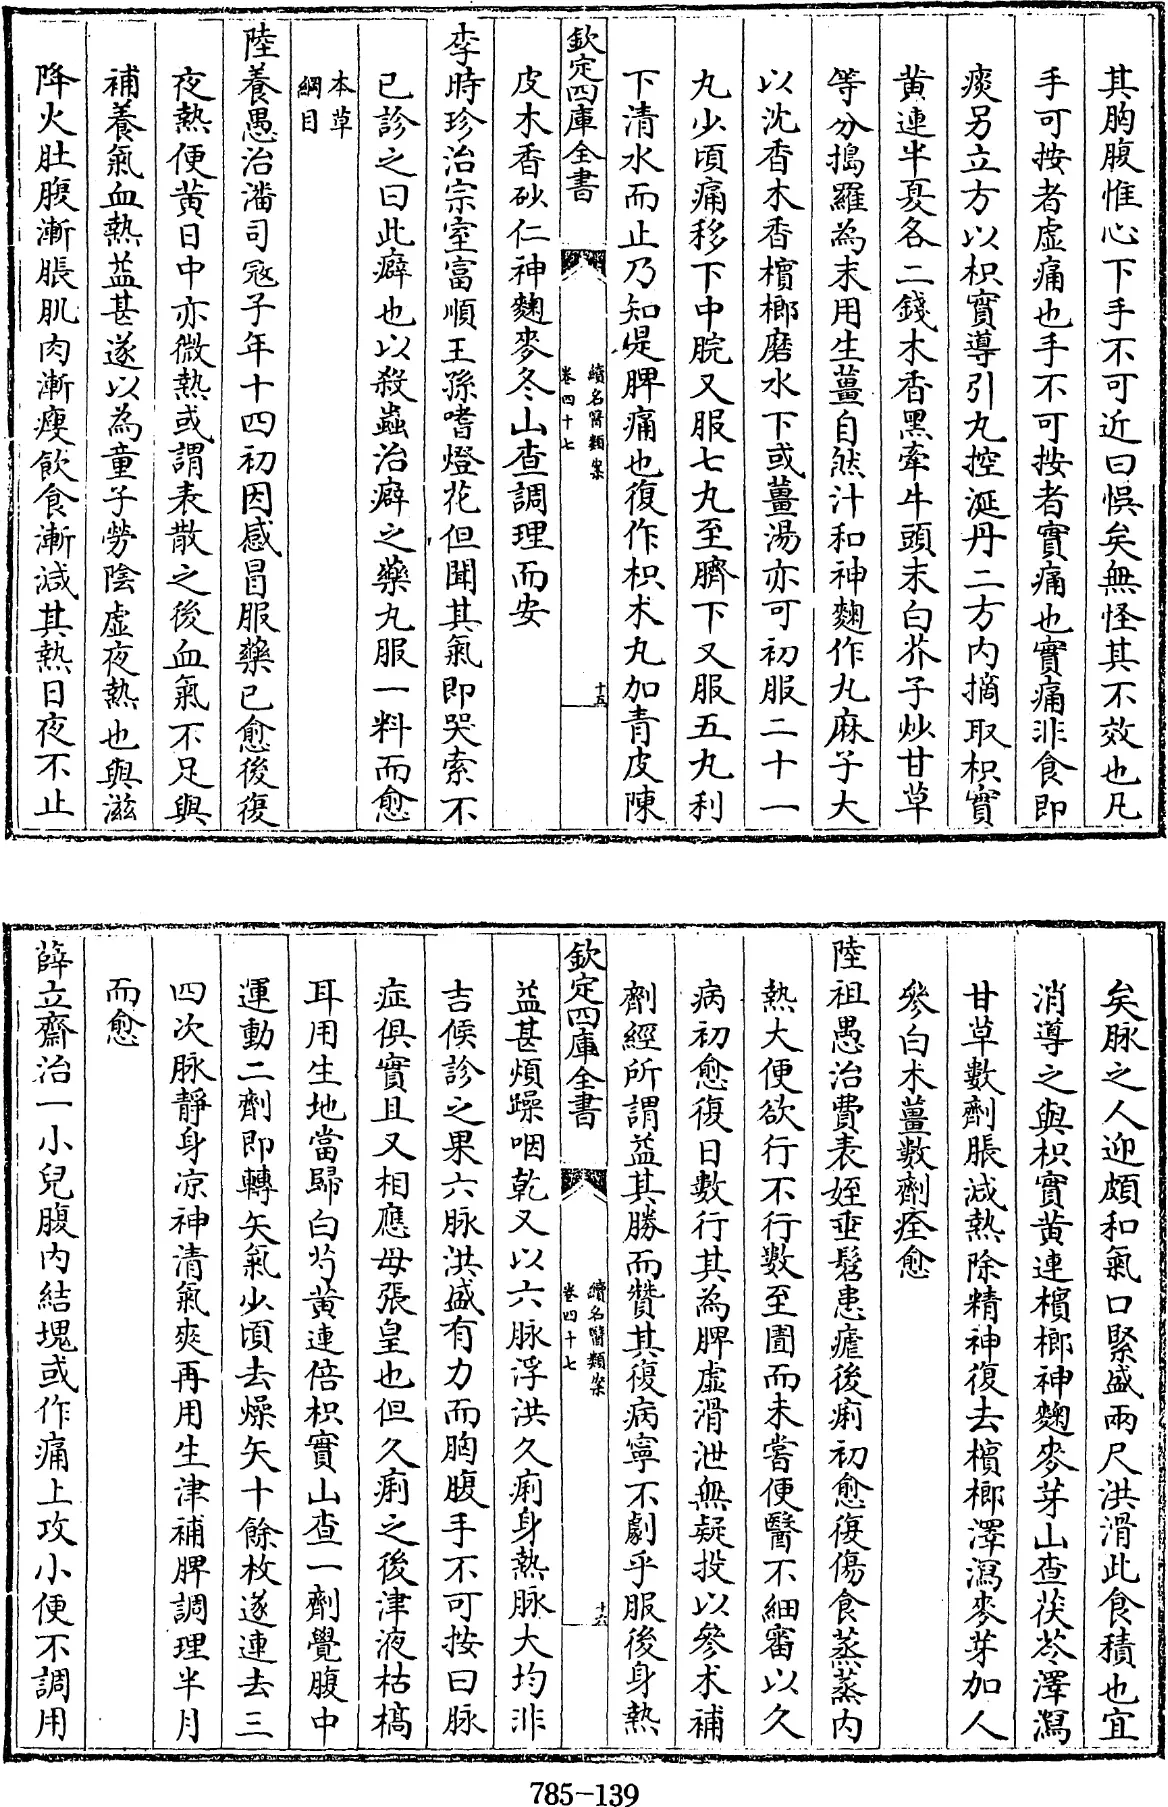 其胸腹惟心下手不可近曰悞矣無怪其不效也凡
手可按者虛痛也手不可按者實痛也實痛非食即
痰另立方以枳實導引丸控涎丹二方内摘取枳實
黄連半夏各二錢木香黑牽牛頭末白芥子炒甘草
等分搗羅為末用生薑自然汁和神麯作丸麻子大
以沈香木香檳榔磨水下或薑湯亦可初服二十一
丸少頃痛移下中脘又服七丸至臍下又服五丸利
下清水而止乃知是脾痛也復作枳朮丸加青皮陳
欽定四庫全書
續名醫類案
卷四十七
十五
皮木香砂仁神麯麥冬山查調理而安
李時珍治宗室富順王孫嗜燈花但聞其氣即哭索不
已診之曰此癖也以殺蟲治癖之藥丸服一料而愈
本草
綱目
陸養愚治潘司寇子年十四初因感冒服藥已愈後復
夜熱便黄日中亦微熱或謂表散之後血氣不足與
補養氣血熱益甚遂以為童子勞陰虛夜熱也與滋
降火肚腹漸脹肌肉漸瘦飲食漸減其熱日夜不止
矣脉之人迎頗和氣口緊盛兩尺洪滑此食積也宜
消導之與枳實黄連檳榔神麯麥芽山查茯苓澤瀉
甘草數劑脹減熱除精神復去檳榔澤瀉麥芽加人
參白朮薑數劑痊愈
陸祖愚治費表姪垂髫患瘧後痢初愈復傷食蒸蒸内
熱大便欲行不行數至圊而未嘗便醫不細審以久
病初愈復日數行其為脾虛滑泄無疑投以參朮補
劑經所謂益其勝而贊其復病寧不劇乎服後身熱
欽定四庫全書
續名醫類案
卷四十七
十六
益甚煩躁咽乾又以六脉浮洪久痢身熱脉大均非
吉候診之果六脉洪盛有力而胸腹手不可按曰脉
症俱實且又相應毋張皇也但久痢之後津液枯槁
耳用生地當歸白芍黄連倍枳實山查一劑覺腹中
運動二劑即轉矢氣少頃去燥矢十餘枚遂連去三
四次脉靜身凉神清氣爽再用生津補脾調理半月
而愈
薛立齋治一小兒腹内結塊或作痛上攻小便不調用
785-139